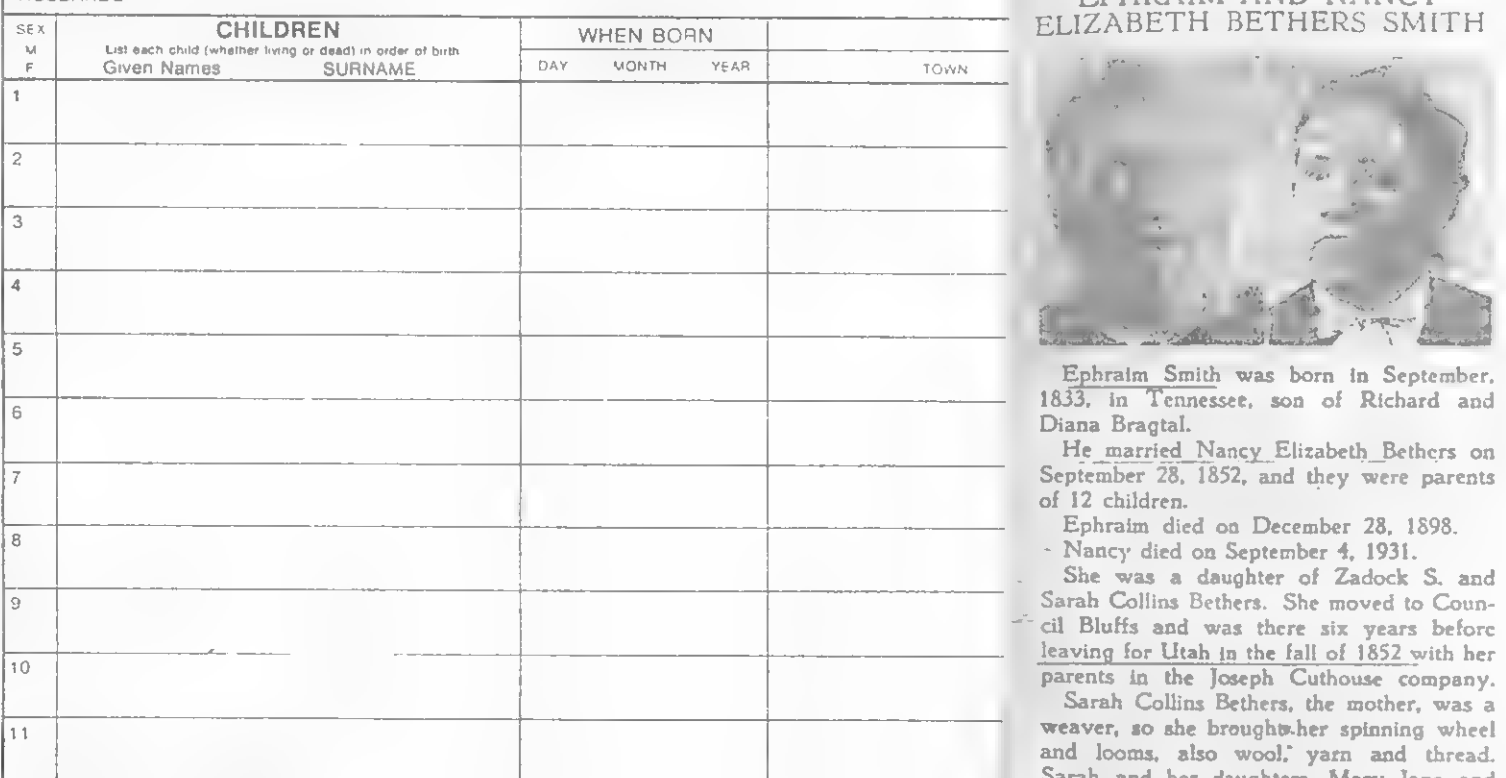 SEX
M
F
CHILDREN
List each child (whether living or dead) in order of birth
Given Names SURNAME
WHEN BORN
DAY MONTH YEAR
TOWN
1
2
3
4
5
6
7
8
9
10
11
EPHRAIM AND NANCY
ELIZABETH BETHERS SMITH
Ephraim Smith was born in September,
1833, in Tennessee, son of Richard and
Diana Bragtal.
He married Nancy Elizabeth Bethers on
September 28, 1852, and they were parents
of 12 children.
Ephraim died on December 28, 1898.
- Nancy died on September 4, 1931.
She was a daughter of Zadock S. and
Sarah Collins Bethers. She moved to Coun-
cil Bluffs and was there six years before
leaving for Utah in the fall of 1852 with her
parents in the Joseph Cuthouse company.
Sarah Collins Bethers, the mother, was a
weaver, so she brought her spinning wheel
and looms, also wool, yarn and thread.
Sarah and her daughters, Mary Jane and